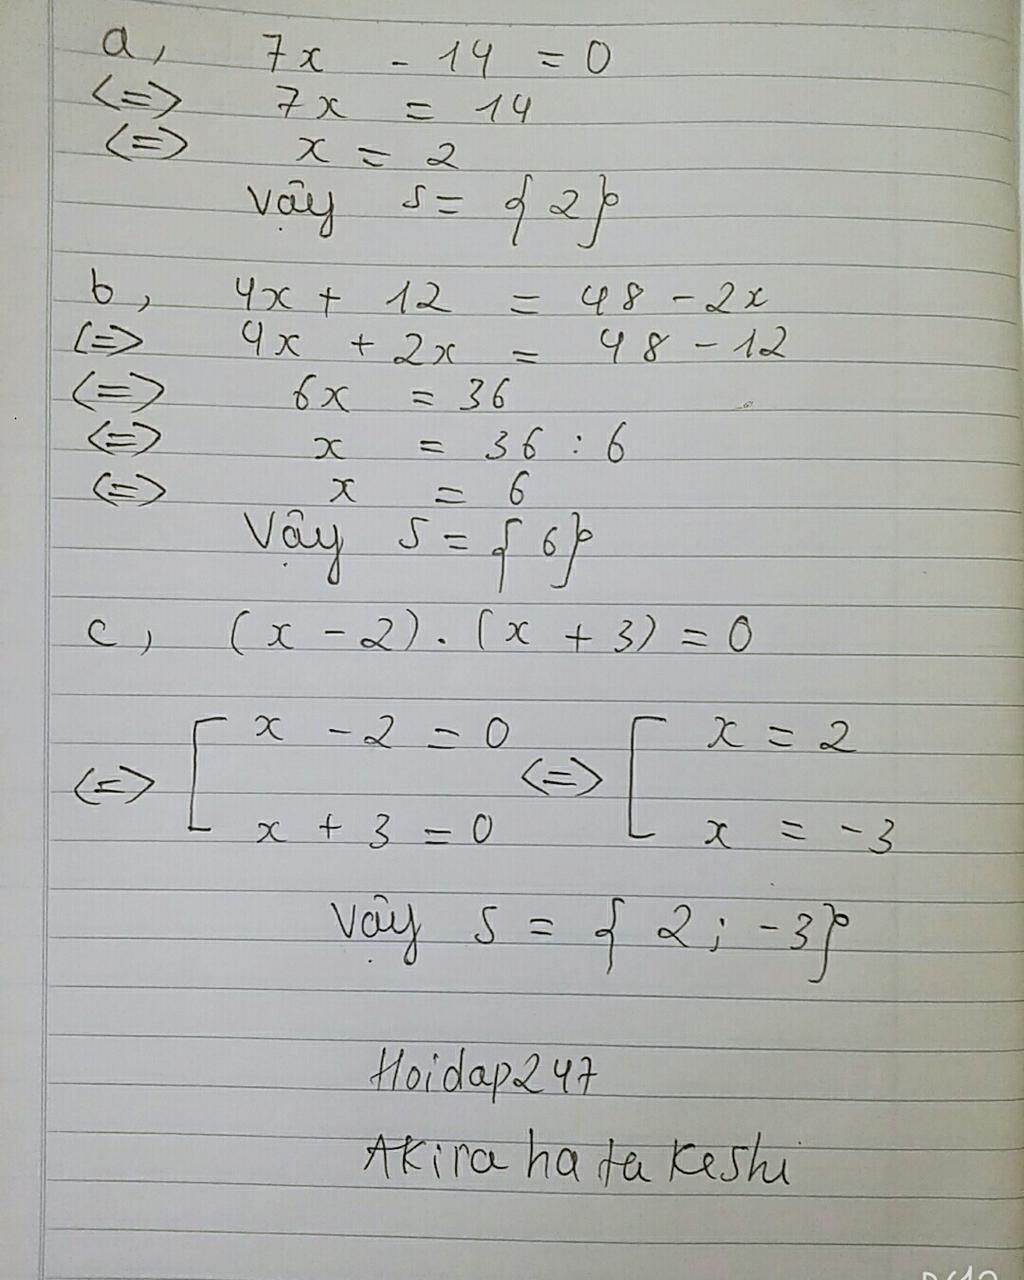 a, 7x - 14 = 0
<=> 7x = 14
<=> x = 2
Vậy S = {2}
b, 4x + 12 = 48 - 2x
<=> 4x + 2x = 48 - 12
<=> 6x = 36
<=> x = 36 : 6
<=> x = 6
Vậy S = {6}
c, (x - 2) . (x + 3) = 0
<=> [ x - 2 = 0 <=> [ x = 2
x + 3 = 0 x = -3
Vậy S = { 2 ; -3}
Hoidap247
Akira hatakeshi